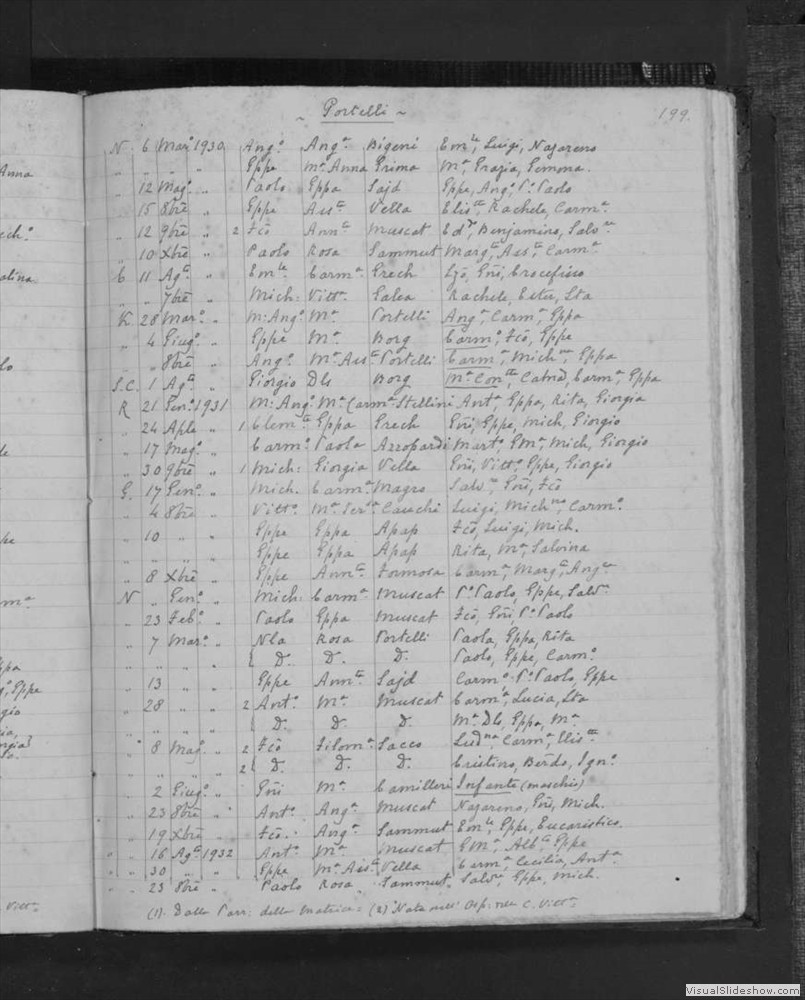 ~ Portelli ~ 199.
N. 6 Mar.º 1930 Ang.º Ang.ª Bigeni Em.le, Luigi, Nazareno
" " " " Gppe M.ª Anna Grima M.ª, Grazia, Gemma.
" 12 Mag.º " Paolo Gppa Sajd Gppe, Ang.º, P.º Paolo
" 15 8bre " Gppe Ass.ta Vella Elis.tta, Rachele, Carm.ª
" 12 9bre " 2 Fcõ Ann.ta Muscat Ed.do, Benjamino, Salv.re
" 10 Xbre " Paolo Rosa Sammut Marg.ta, Ass.ta, Carm.ª
C 11 Ag.to " Em.le Carm.ª Grech Gñi, Crocefisso
" " 7bre " Mich: Vitt.ª Galea Rachele, Ester,
K 28 Mar.º " M: Ang.º M.ª Portelli Ang.ª, Carm.ª, Gppa
" 4 Giug.º " Gppe M.ª Borg Carm.º, Fcõ, Gppe
" " 8bre " Ang.º M.ª Ass.ta Portelli Carm.ª, Mich.na, Gppa
S.C. 1 Ag.to " Giorgio Dls Borg M.ª Con.tta, Catna, Carm.ª, Gppa
R 21 Gen.º 1931 M: Ang.º M.ª Carm.ª Stellini Ant.ª, Gppa, Rita, Giorgia
" 24 Aple " 1 Clem.te Gppa Grech Gñi, Gppe, Mich, Giorgio
" 17 Mag.º " Carm.º Paola Azzopardi Mart.º, G M.ª, Mich, Giorgio
" 30 9bre " 1 Mich: Giorgia Vella Gñi, Vitt.º, Gppe, Giorgio
G. 17 Gen.º " Mich. Carm.ª Magro Salv.re, Gñi, Fcõ
" 4 8bre " Vitt.º M.ª Ser.na Cauchi Luigi, Mich.no, Carm.º
" 10 " " Gppe Gppa Apap Fcõ, Luigi, Mich.
" " " " Gppe Gppa Apap Rita, M.ª, Salvina
" 8 Xbre " Gppe Ann.ta Formosa Carm.ª, Marg.ta, Ang.ca
N " Gen.º " Mich: Carm.ª Muscat P.º Paolo, Gppe, Salv.re
" 23 Feb.º " Paolo Gppa Muscat Fcõ, Gñi, P.º Paolo
" 7 Mar.º " Nla Rosa Portelli Paola, Gppa, Rita
" " " " { D.º D.ª D.º Paolo, Gppe, Carm.º
" 13 " " Gppe Ann.ta Sajd Carm.º P.º Paolo, Gppe
" 28 " " 2 Ant.º M.ª Muscat Carm.ª, Lucia,
{ D.º D.ª D.º M.ª Dls, Gppa, M.ª
" 8 Mag.º " 2 Fcõ Filom.ª Sacco Lud.na, Carm.ª, Elis.tta
" " " " 2 { D.º D.ª D.º Cristino, Berdo, Ign.º
" 2 Giug.º " Gñi M.ª Camilleri Infante (maschio)
" 23 8bre " Ant.º Ang.ª Muscat Nazareno, Gñi, Mich.
" 19 Xbre " Fcõ. Ang.ª Sammut Em.le, Gppe, Eucaristico.
" 16 Ag.to 1932 Ant.º M.ª Muscat G M.ª, Alb.to, Gppe
" 30 " " Gppe M.ª Ass.ta Vella Carm.ª, Cecilia, Ant.ª
" 23 8bre " Paolo Rosa Sammut Salv.re, Gppe, Mich.
(1) Dalla Parr: della Matrice. (2) Nata nell' Osp: della C. Vitt.ª
VisualSlideshow.com